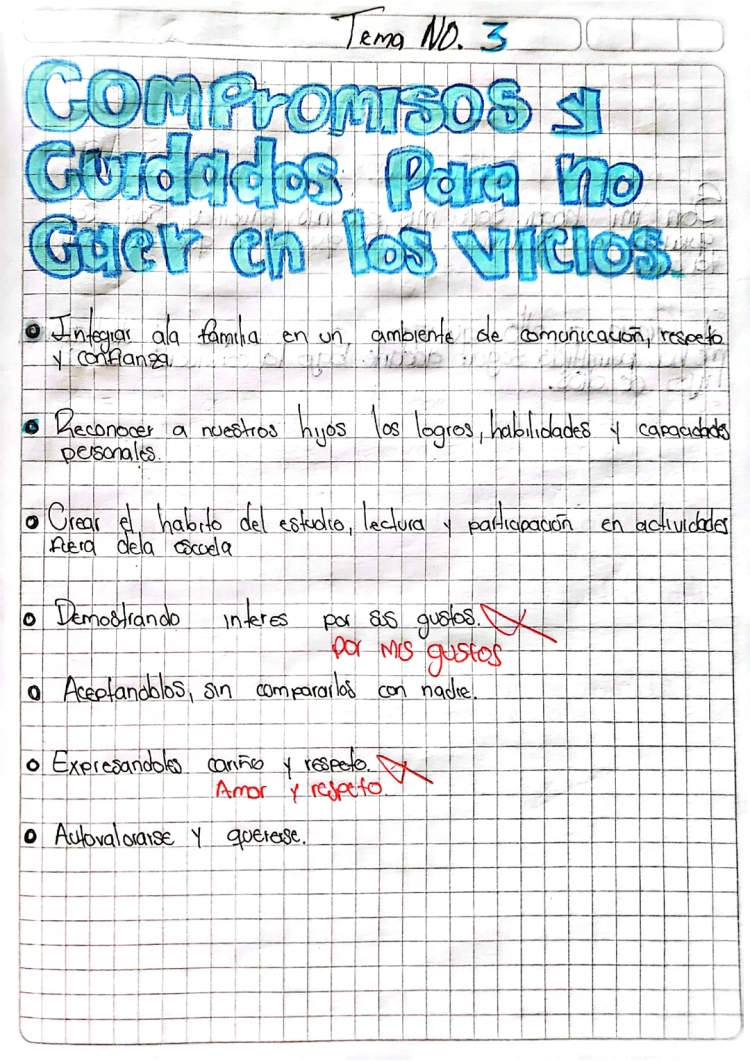 Tema NO. 3
Compromisos y
Cuidados Para no
Caer en los vicios.
Integrar ala familia en un, ambiente de comunicación, respeto
y confianza.
Reconocer a nuestros hijos los logros, habilidades y capacidades
personales.
Crear el habito del estudio, lectura y participación en actividades
fuera dela escuela
Demostrando interes por sus gustos.
por mis gustos
Aceptandolos, sin compararlos con nadie.
Expresandoles cariño y respeto.
Amor y respeto
Autovalorarse y quererse.